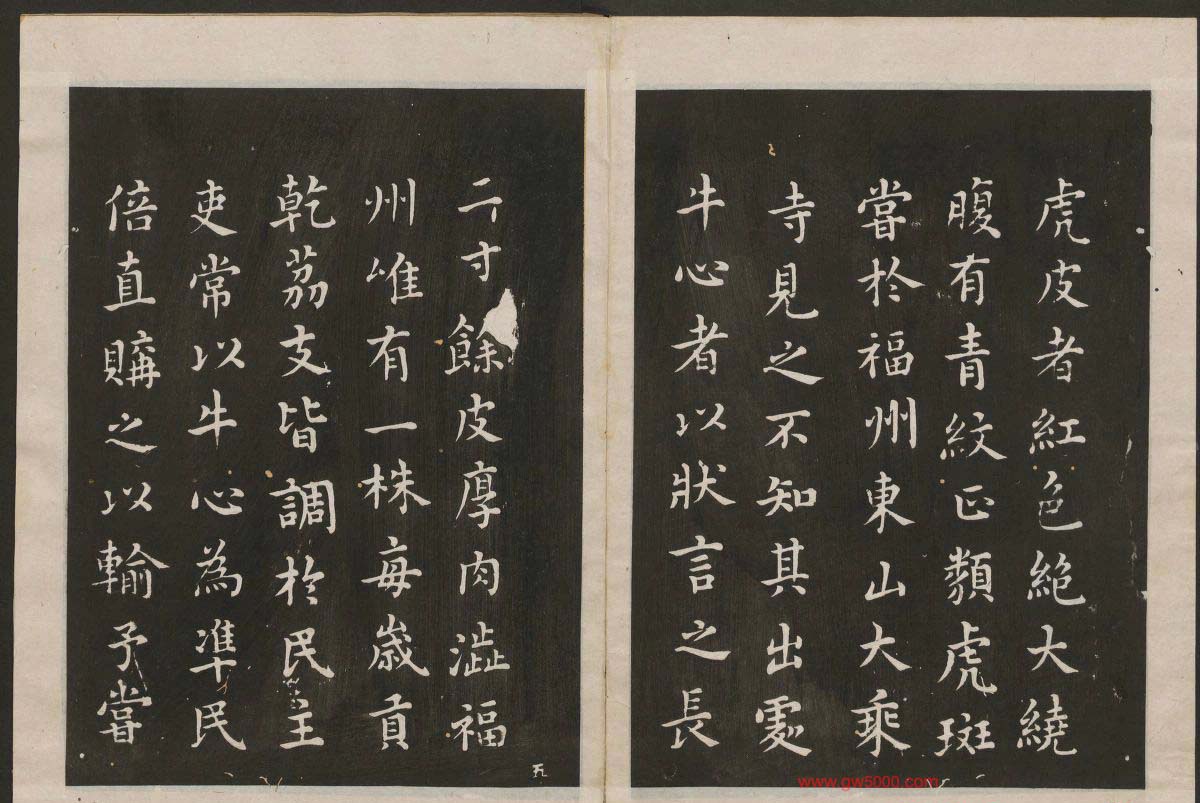 虎皮者紅色絶大繞
腹有青紋正類虎斑
嘗於福州東山大乘
寺見之不知其出處
牛心者以狀言之長
二寸餘皮厚肉澁福
州唯有一株每歲貢
乾荔支皆調於民主
吏常以牛心為準民
倍直購之以輸予嘗
五
www.gw5000.com